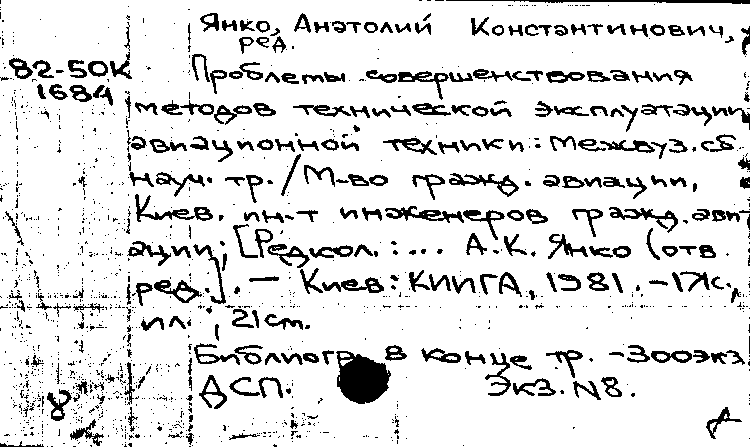 Янко, Анатолий Константинович,
ред.
82-50К Проблемы совершенствования
1684 методов технической эксплуатации
авиационной техники: Межвуз. сб.
науч. тр. / М-во гражд. авиации,
Киев. ин-т инженеров гражд. ави
ации; [Редкол.: ... А.К. Янко (отв.
ред.]. — Киев: КИИГА, 1981. -
ил.; 21 см.
Библиогр. в конце тр. - 300 экз.
ДСП. Экз. N8.
8